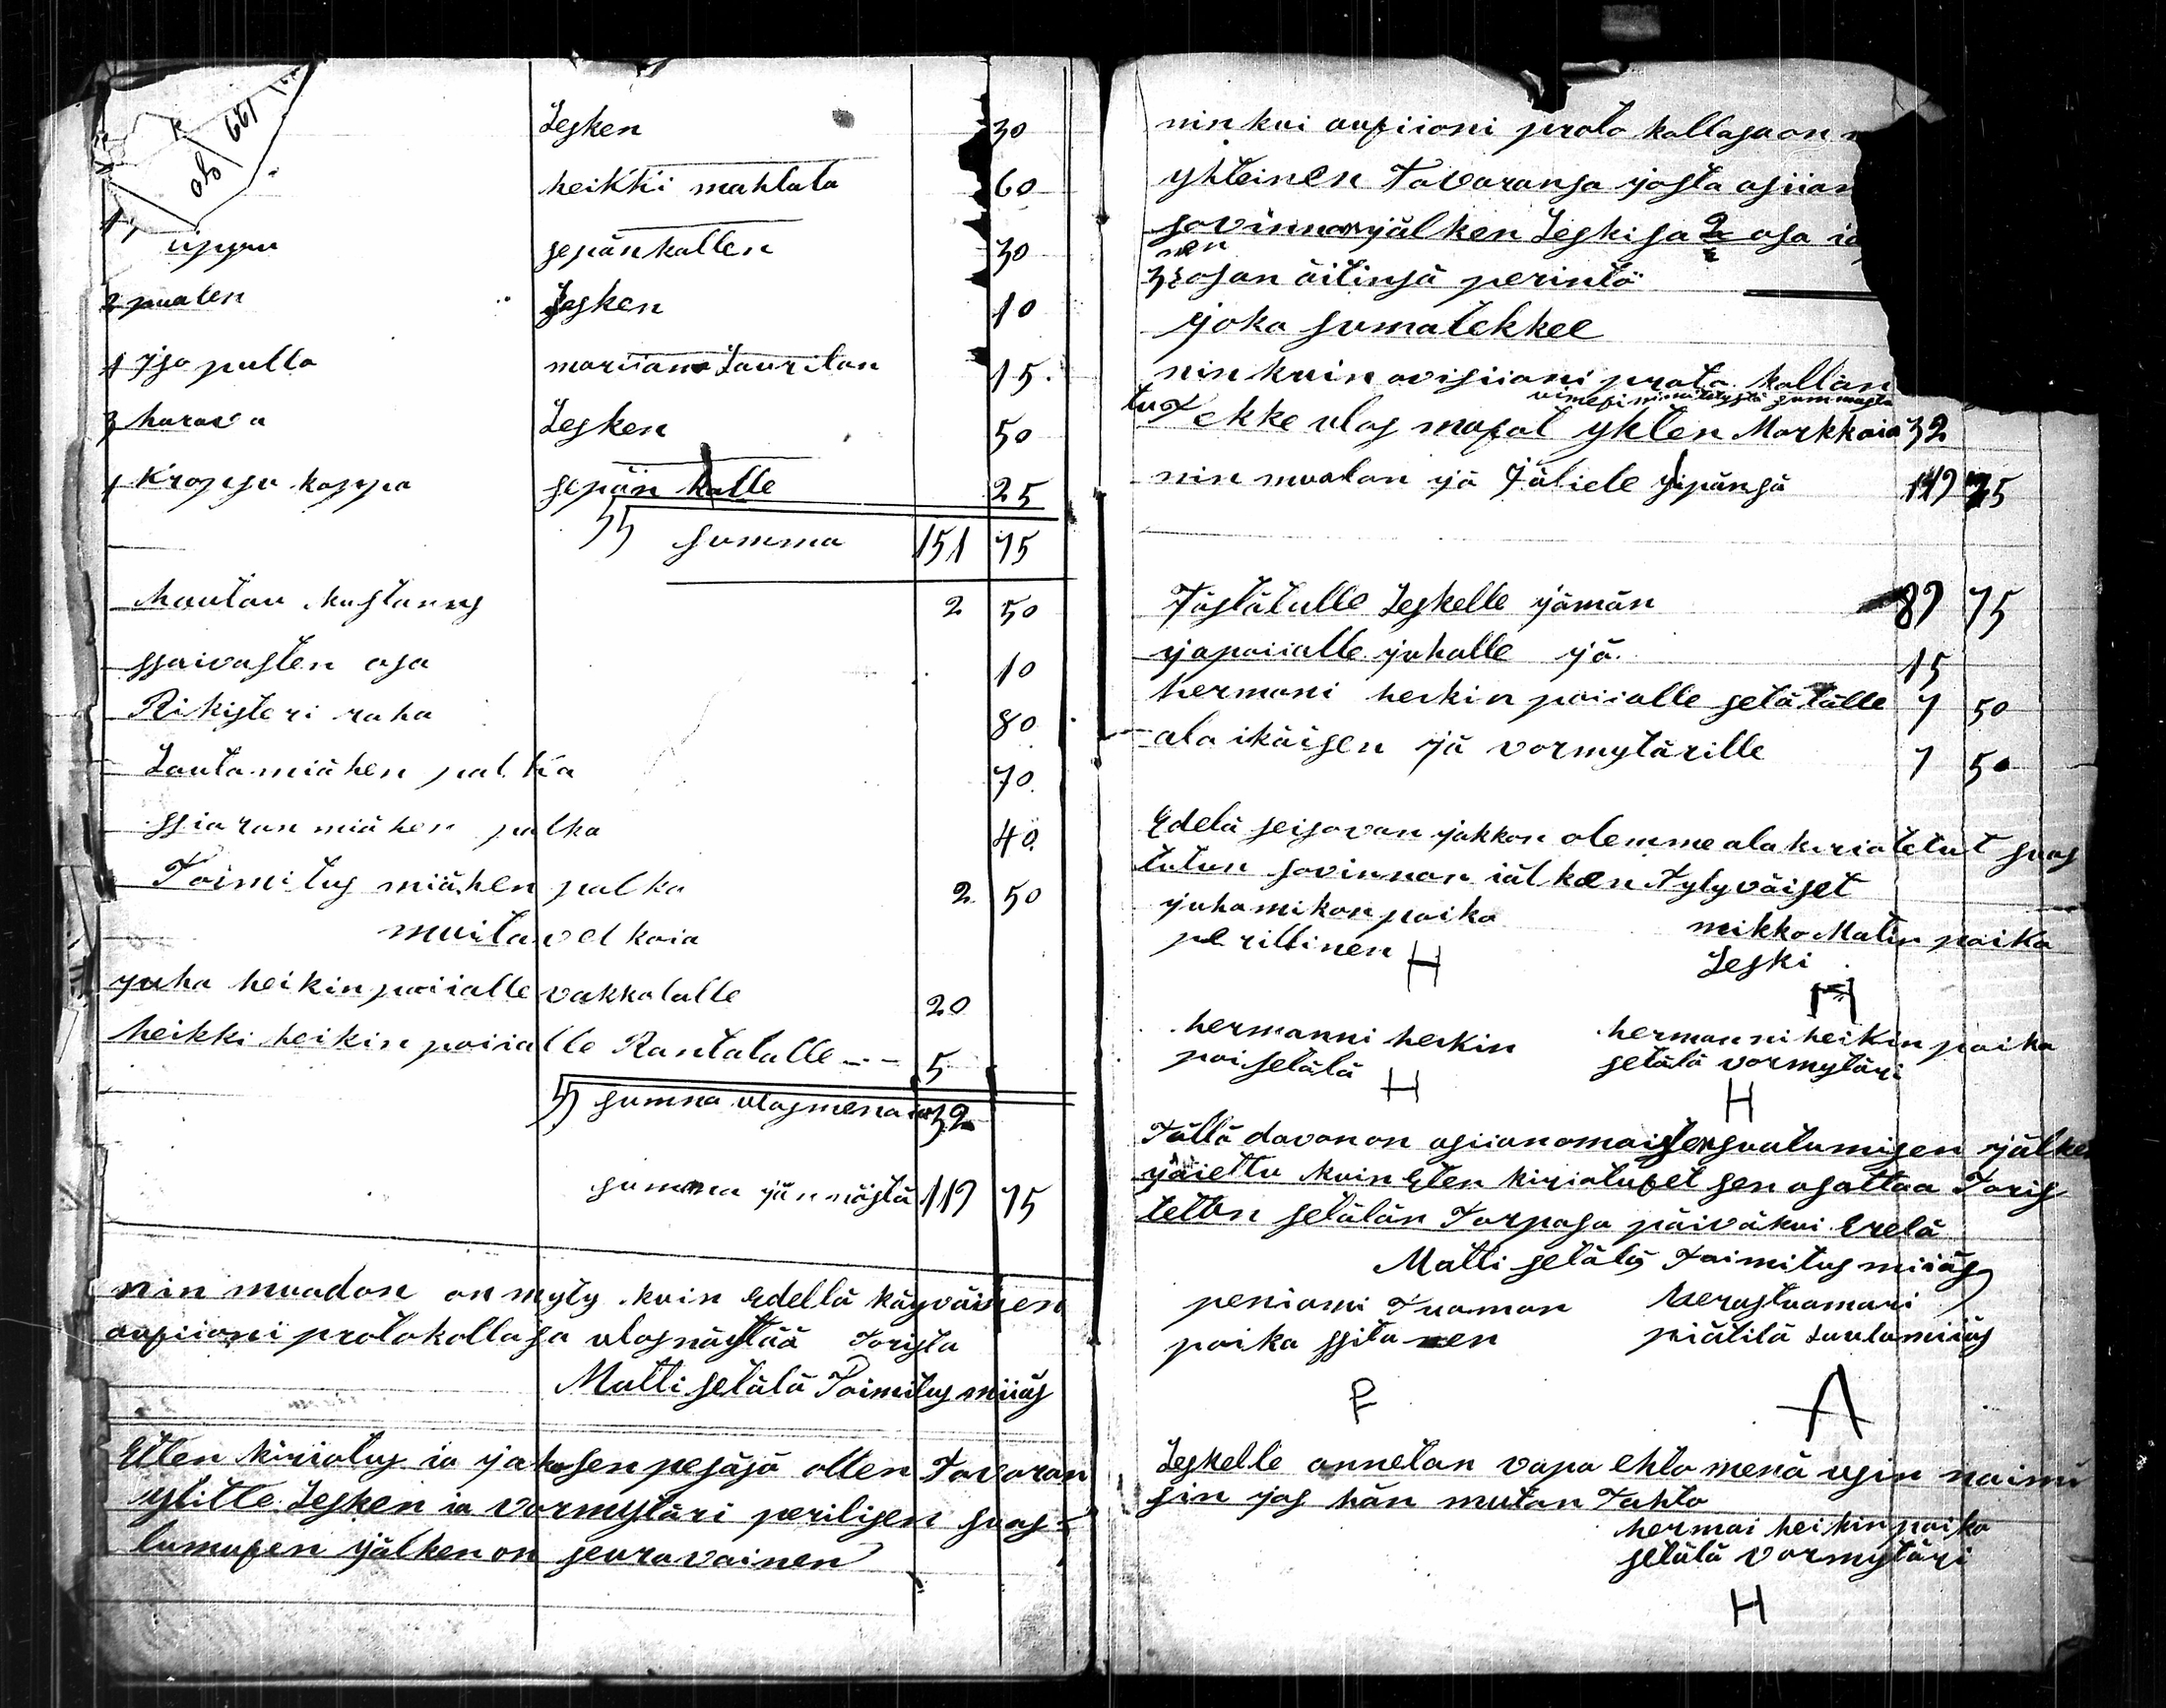 199
90
Lesken 30
heikki mahlala 60
sepänkallen 30
2 puolen Lesken 10
1 yso pullo mariiana Lauritan 15.
3 harava Lesken 50
1 kropsu kappa sepän kalle 25
summa 151 75
Muutan kustanus 2 50
ssaivasten osa 10
Rikisteri raha 80
Lautamiähen palkia 70.
ssiaran miähen palka 40.
Toimitus miähen palka 2. 50
muita velkoia
juha heikin poiialle vakkalalle 20
heikki heikin poiialle Rantalalle -- 5
summa ulosmenoia 32
summa jännöstä 119 75
nin muodon on myty kuin Edellä käyväinen
aupiioni protokollasa ulosnäyttää Torista
Matti setälä Toimitus miiäs
Etten kiriotus ia jakosen pesäsä ollen Tavaran
ylitte Lesken ia vormytäri perilisen suos-
tumuxen jälken on seuravainen
nin kui aupiioni proto kollasa on
yhteinen Tavaransa josta asiian
sovinnon jälken Leskisa 2 osa ia
nen
3 osan äitinsä perintö
joka sumatekkee
nin kuin ovisiioni proto kollan
viimexi nimitetystä summasta
tux ekke ulos maxot ykten Markkaia 32
nin muolon jä Jäliele sipänsä 119 75
Tästätulle Leskelle jämän 89 75
japoiialle juhalle jä. 15
hermani heikin poiialle setälälle 7 50
ala ikäisen jä vormytärille 7 50
Edelä seisovan jakkon olemme ala kiriotetut suos
tutun sovinnan iälken Tytyväiset
juha mikon poika mikko Matin poika
perillinen H Leski
H
hermanni heikin hermanni heikin poika
poi setälä setälä vormytäri
H H
Tällä davon on asiianomaisten suatumisen jälken
jaiettu kuin Eten kiriotuxet sen osottaa Toris
tetton setälän Torpasa päiväkui Erelä
Matti setälä Toimitus miiäs
peniami Tuoman Herastuamari
poika ssitanen piätilä Lautamiiäs
P A
Leskelle annetan vapa ehto menä usin naimi
sin jos hän mutan Tahto
hermai heikin poika
setälä vormytäri
H